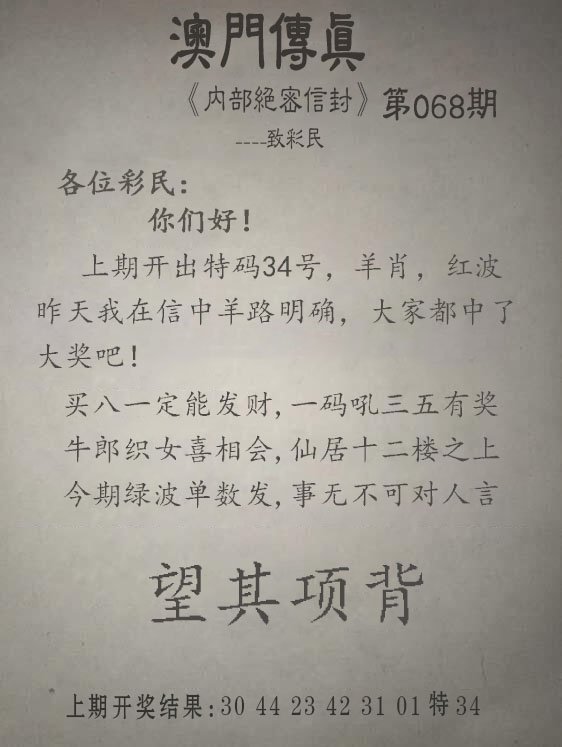 澳門傳眞
《内部絕密信封》第068期
----致彩民
各位彩民：
你们好！
上期开出特码34号，羊肖，红波
昨天我在信中羊路明确，大家都中了
大奖吧！
买八一定能发财,一码吼三五有奖
牛郎织女喜相会,仙居十二楼之上
今期绿波单数发,事无不可对人言
望其项背
上期开奖结果:30 44 23 42 31 01 特 34